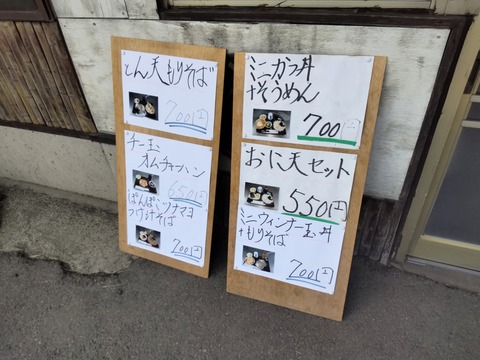 とん天もりそば
700円
チー玉
オムチャーハン
650円
ぱんぱミツナマヨ
つけ汁そば
700円
ミニカツ丼
+そうめん
700円
おに天セット
550円
ミニウィンナー玉丼
+もりそば
700円